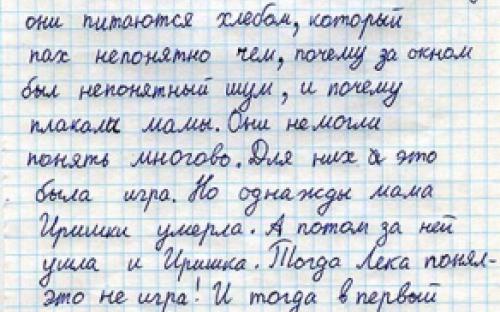 они питаются хлебом, который
пах непонятно чем, почему за окном
был непонятный шум, и почему
плакали мамы. Они не могли
понять многово. Для них а это
была игра. Но однажды мама
Иришки умерла. А потом за ней
ушла и Иришка. Тогда Лека понял-
это не игра! И тогда в первый